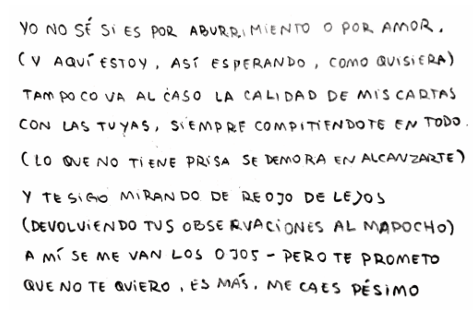 YO NO SÉ SI ES POR ABURRIMIENTO O POR AMOR.
(Y AQUÍ ESTOY, ASÍ ESPERANDO, COMO QUISIERA)
TAMPOCO VA AL CASO LA CALIDAD DE MIS CARTAS
CON LAS TUYAS, SIEMPRE COMPITIENDOTE EN TODO.
(LO QUE NO TIENE PRISA SE DEMORA EN ALCANZARTE)
Y TE SIGO MIRANDO DE REOJO DE LEJOS
(DEVOLVIENDO TUS OBSERVACIONES AL MAPOCHO)
A MÍ SE ME VAN LOS OJOS - PERO TE PROMETO
QUE NO TE QUIERO, ES MÁS, ME CAES PÉSIMO